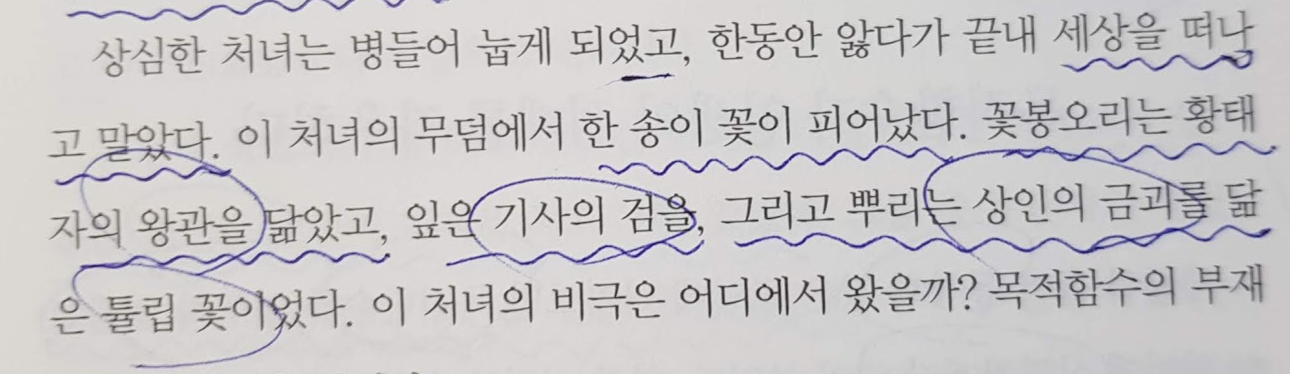 상심한 처녀는 병들어 눕게 되었고, 한동안 앓다가 끝내 세상을 떠나
고 말았다. 이 처녀의 무덤에서 한 송이 꽃이 피어났다. 꽃봉오리는 황태
자의 왕관을 닮았고, 잎은 기사의 검을, 그리고 뿌리는 상인의 금괴를 닮
은 튤립 꽃이었다. 이 처녀의 비극은 어디에서 왔을까? 목적함수의 부재